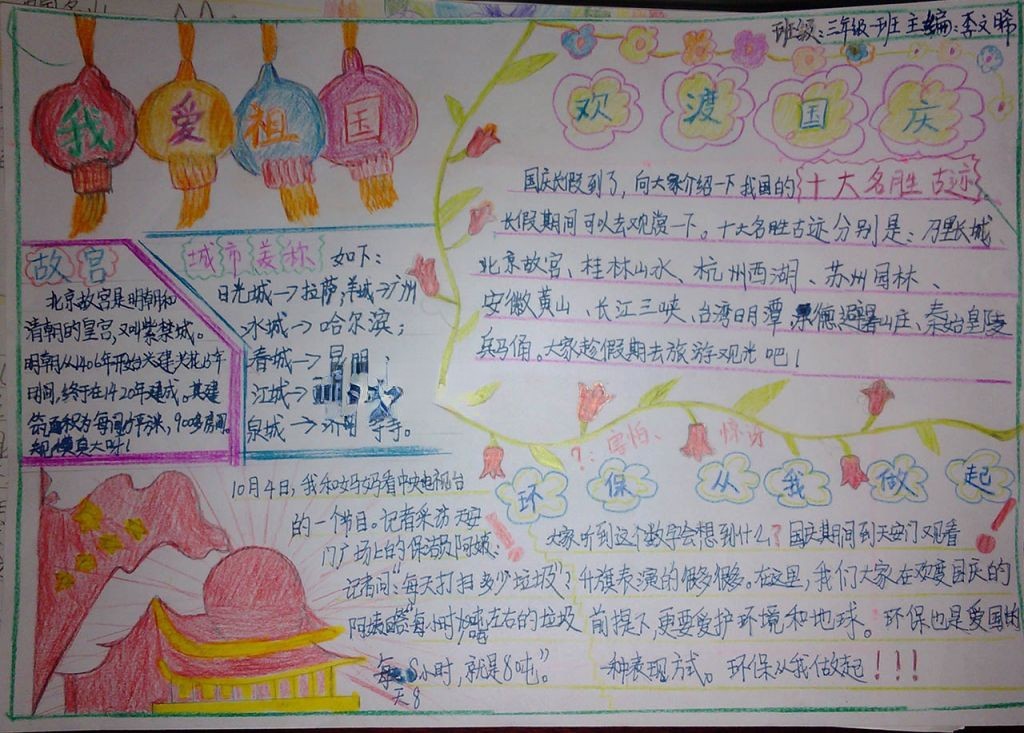 班级：三年级一班 主编：李文晞
我爱祖国
欢渡国庆
国庆长假到了，向大家介绍一下我国的十大名胜古迹，
长假期间可以去观赏一下。十大名胜古迹分别是：万里长城、
北京故宫、桂林山水、杭州西湖、苏州园林、
安徽黄山、长江三峡、台湾日月潭、承德避暑山庄、秦始皇陵
兵马俑。大家趁假期去旅游观光吧！
故宫
北京故宫是明朝和
清朝的皇宫，又叫紫禁城。
明朝从1406年开始兴建大花15年
时间，终于在1420年建成。其建
筑面积为
900多房间。
城市美称 如下：
日光城→拉萨；羊城→广州
冰城→哈尔滨；
春城→昆明；
江城→
泉城→济南 等等。
10月4日，我和妈妈看中央电视台
的一个节目。记者采访天安
门广场上的保洁员阿姨：
记者问：“每天打扫多少垃圾”？
阿姨答“每小时 左右的垃圾
每天8小时，就是8吨。”
？：害怕、惊讶
环保从我做起！
大家听到这个数字会想到什么？国庆期间到天安门观看
升旗表演的很多很多。在这里，我们大家在欢度国庆的
前提下，更要爱护环境和地球。环保也是爱国的
一种表现方式。环保从我做起！！！